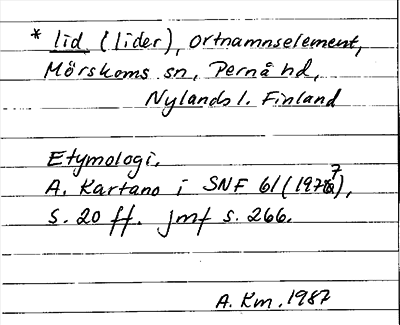 * lid (lider), ortnamnselement,
Mörskoms sn, Pernå hd,
Nylands l. Finland
Etymologi.
A. Kartano i SNF 61 (1977),
s. 20 ff. jmf s. 266.
A. Km. 1987